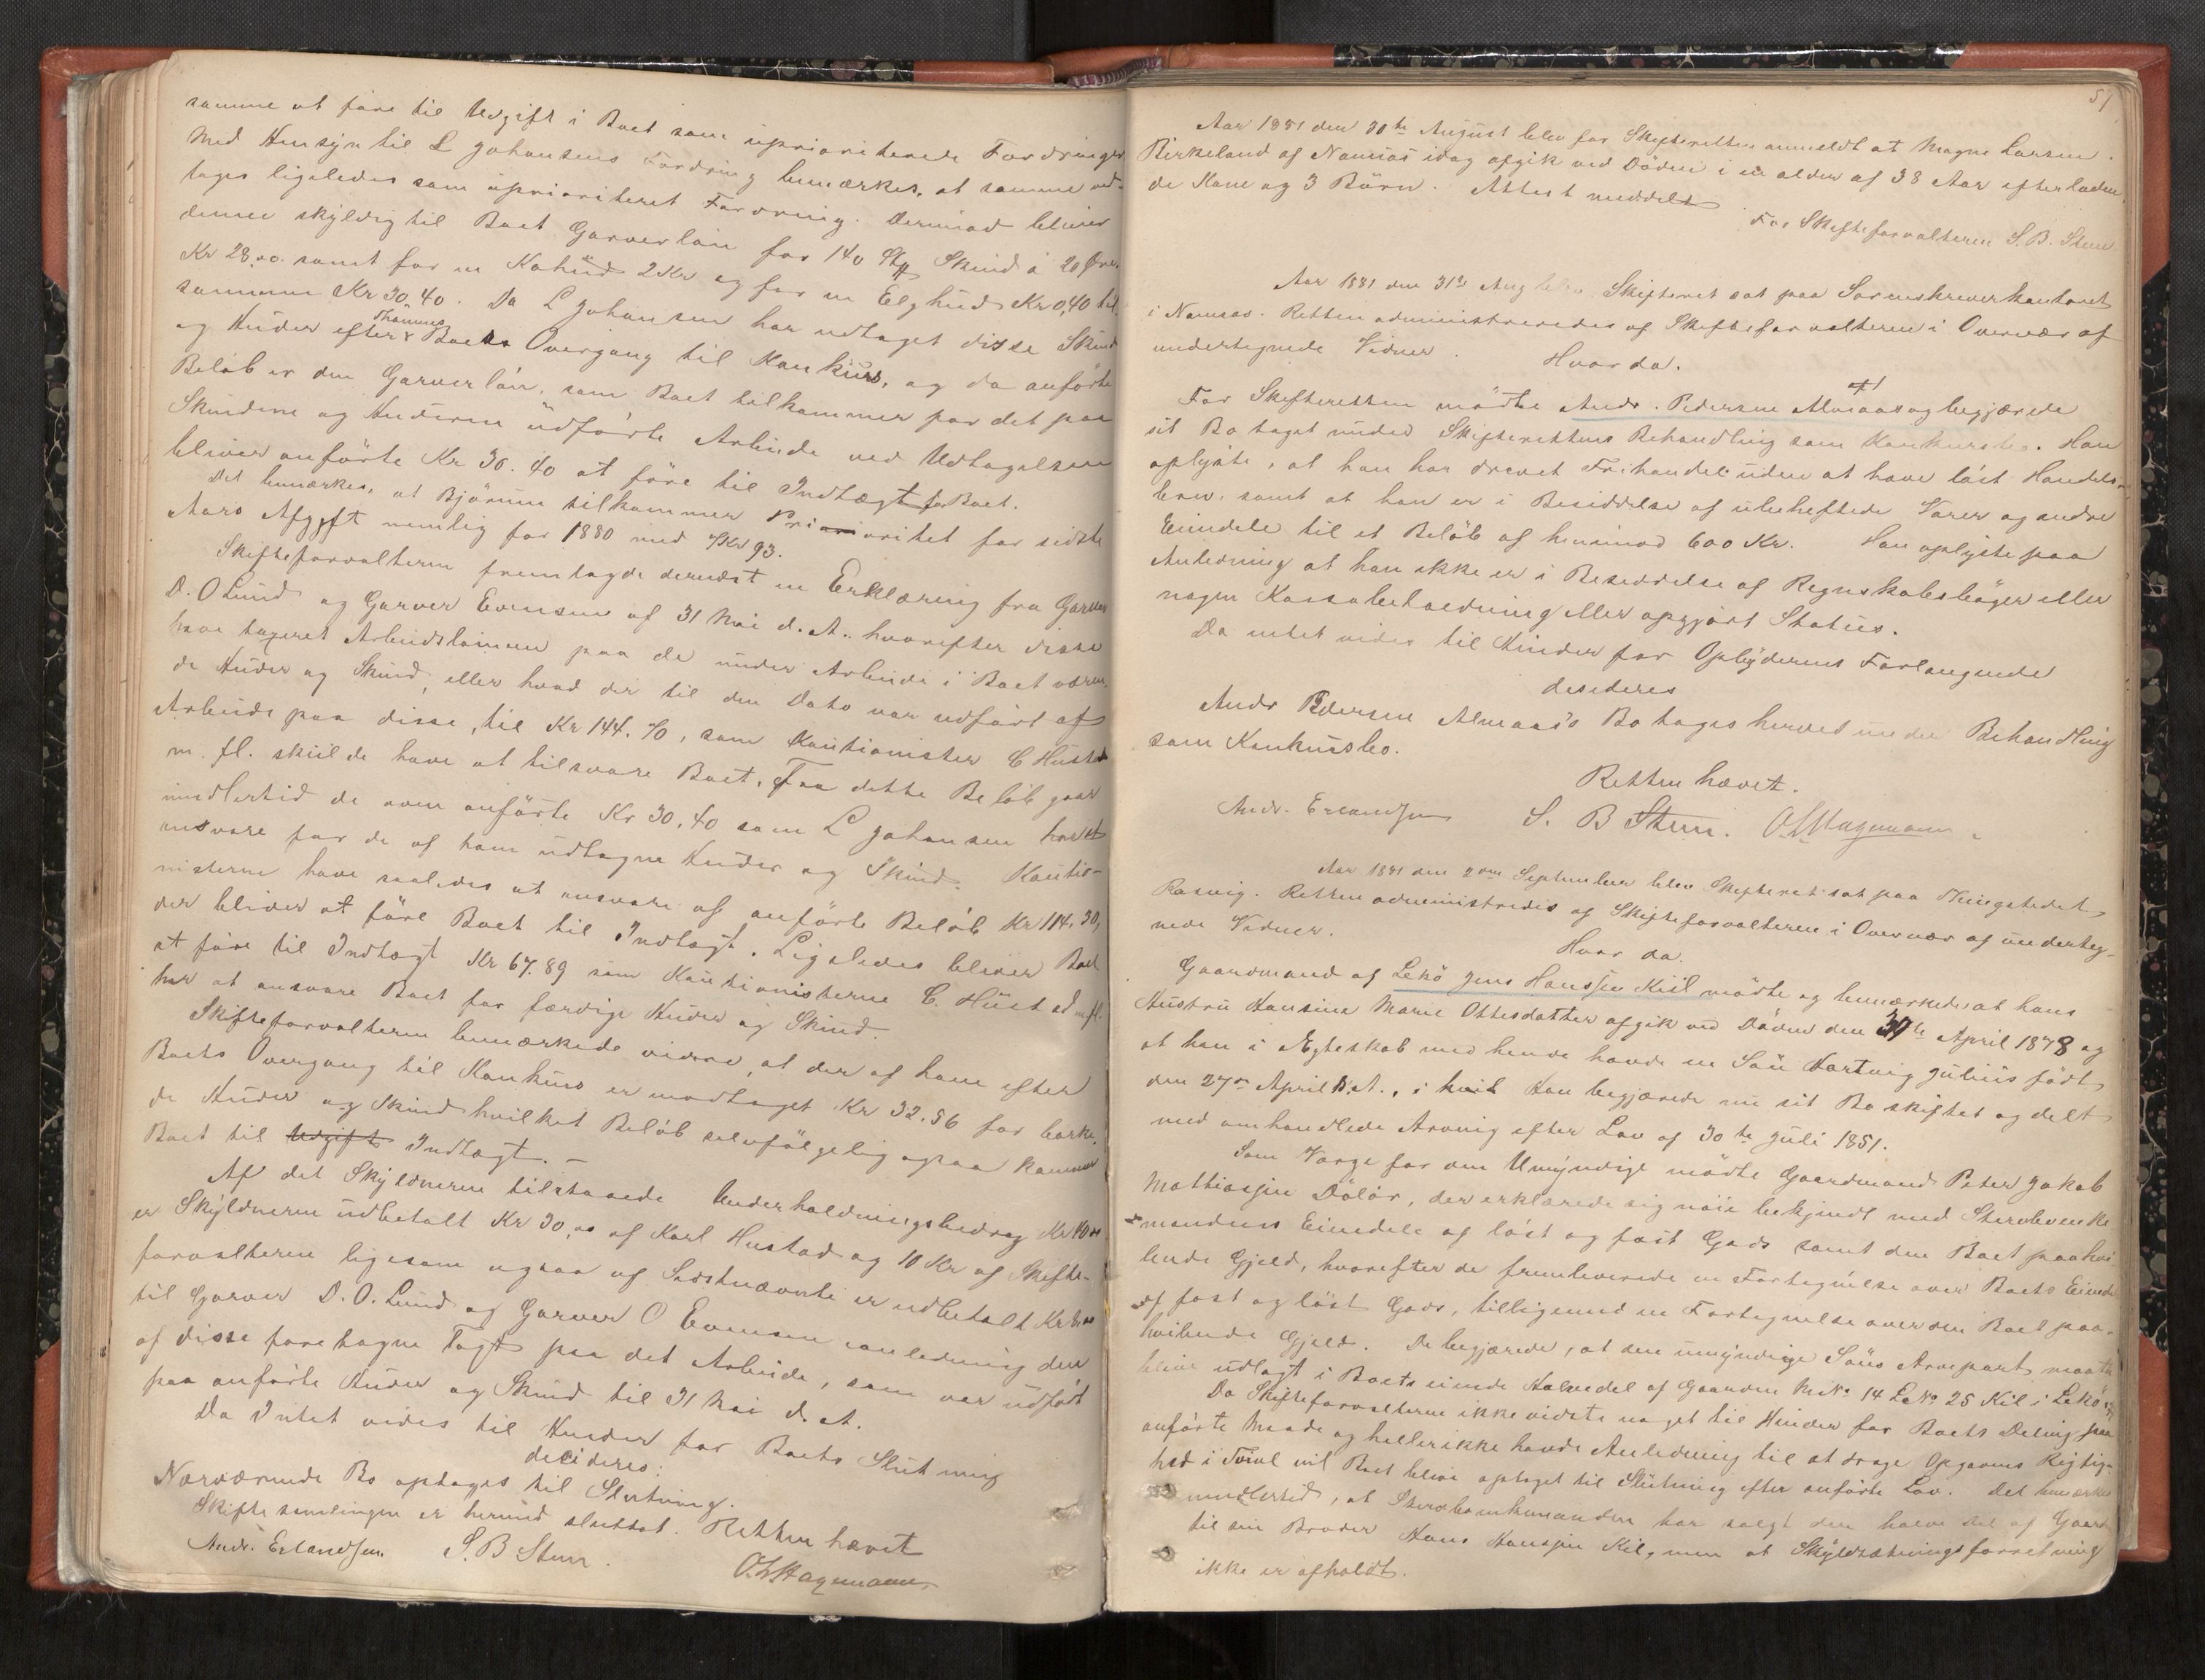 samme at føre til Udgift i Boet som upriorterede Fordringer
Med Hensyn til L Johansens Fordring bemærkes, at samme ud-
tages ligeledes som uprioriteret Fordring. Derimod bliver
denne skyldig til Boet Garverløn for 140 Stkk Skind á 20 Øre.
Kr 28,00. samt for en Kohud 2 Kr og for en Elghud Kr 0,40 til
sammen Kr 30,40. Da L Johansen har udtaget disse Skind
og Huder efter Thommes Boets Overgang til Konkurs, og da anførte
Beløb er den Garverløn, som Boet tilkommer for det paa
Skindene og Huderne udførte Arbeide ved Udtagelsen
bliver anførte Kr 30.40 at føre til Indtægt for Boet.
Det bemærkes, at Bjørum tilkommer Prioritet for sidste
Aars Afgift nemlig for 1880 med Kr 93.
Skifteforvalteren fremlagde dernæst en Erklæring fra Garver
D. O Lund og Garver Evensen af 31 Mai d. A., hvorefter disse
have taxeret Arbeidslønnen paa de under Arbeide i Boet væren-
de Huder og Skind, eller hvad der til den Dato var udført af
Arbeide paa disse, til Kr 144.70, som Kautionister C Hustad
m. fl. skulde have at tilsvare Boet. Fra dette Beløb gaar
imidlertid de oven anførte Kr 30.40 som L Johansen har at
ansvare for de af ham udtagne Huder og Skind. Kautio-
nisterne have saaledes at ansvare af anførte Beløb Kr 114.30,
der bliver at føre Boet til Indtægt. Ligeledes bliver Boet
at føre til Indtægt Kr 67.89 som Kautionisterne C. Hustad mfl.
har at ansvare Boet for færdige Huder og Skind.
Skifteforvalteren bemærkede videre, at der af ham efter
Boets Overgang til Konkurs er modtaget Kr 32.56 for barke-
de Huder og Skind hvilket Beløb selvfølgelig ogsaa kommer
Boet til Udgift Indtægt. –
Af det Skyldneren tilstaaede Underholdningsbidrag Kr 40 00
er Skyldneren udbetalt Kr 30,00 af Karl Hustad og 10 Kr af Skifte-
forvalteren ligesom ogsaa af Sidstnævnte er udbetalt Kr
til Garver D. O. Lund og Garver O Evensen i anledning den
af disse foretagne Taxt paa det Arbeide, som var udført
paa anførte Huder og Skind til 31 Mai d. A.
Da Intet vides til Hinder for Boets Slutning
decideres:
Nærværende Bo optages til Slutning.
Skiftesamlingen er hermed sluttet. Retten hævet
Andr. Erlandsen. S. B Steen. O. Hagemann

57
Aar 1881 den 30te August blev for Skifteretten anmeldt at Magne Larsen
Birkeland af Namsos idag afgik ved Døden i en alder af 38 Aar efterladen-
de Kone og 3 Børn. Attest meddelt
For Skifteforvalteren S. B. Steen
Aar 1881 den 31te Aug blev Skifteret sat paa Sorenskriverkontoret
i Namsos. Retten administreredes af Skifteforvalteren i Overvær af
undertegnede Vidner.
Hvor da.
For Skifteretten mødte Andr. Pedersen Almaas og begjærede
sit Bo taget under Skifterettens Behandling som Konkursbo. Han
oplyste, at han har drevet Frihandel uden at have løst Handels-
brev, samt at han er i Besiddelse af ubeheftede Varer og andre
Eiendele til et Beløb af henimod 600 Kr. Han oplyste paa
Anledning at han ikke er i Besiddelse af Regnskabsbøger eller
nogen Kassabeholdning eller opgjort Status.
Da intet vides til Hinder for Opbyderens Forlangende
desideres
Andr Pedersen Almaas's Bo tages herved under Behandling
som Konkursbo.
Retten hævet.
Andr. Erlandsen S. B Steen. O. Hagemann
Aar 1881 den 2den September blev Skifteret sat paa Thingstedet
Rasvig. Retten administredes af Skifteforvalteren i Overvær af underteg-
nede Vidner.
Hvor da.
Gaardmand af Lekø Jens Hanssen Kiil mødte og bemærkede, at hans
Hustru Hansine Marie Ottesdatter afgik ved Døden den 30te April 1878 og
at han i Ægteskab med hende havde en Søn Hartvig Julius født
den 27de April D. A., i hvis Han begjærede nu sit Bo skiftet og delt
med omhandlede Arving efter Lov af 30te Juli 1851.
Som Værge for den Umyndige mødte Gaardmand Peter Jakob
Mathiassen Døløv, der erklærede sig nøie bekjendt med Stervboenke
mandens Eiendele af løst og fast Gods samt den Boet paahvi
lende Gjeld, hvorefter de fremleverede en Fortegnelse over Boets Eiendele
af fast og løst Gods, tilligemed en Fortegnelse over den Boet paa-
hvilende Gjeld. De begjærede, at den umyndige Søns Arvepart maatte
blive udlagt i Boets eiende Halvedel af Gaarden MNo 14 LNo 25 Kil i Lekø
Da Skifteforvalteren ikke vidste noget til Hinder for Boets Deling paa
anførte Maade og heller ikke havde Anledning til at drage Opgavens Rigtig-
hed i Tvivl vil Boet blive optaget til Slutning efter anførte Lov. Det bemærkes
imidlertid, at Stervboenkemanden har solgt den halve Del af Gaarden
til sin Broder Hans Hanssen Kil, men at Skyldsætningsforretning
ikke er afholdt.